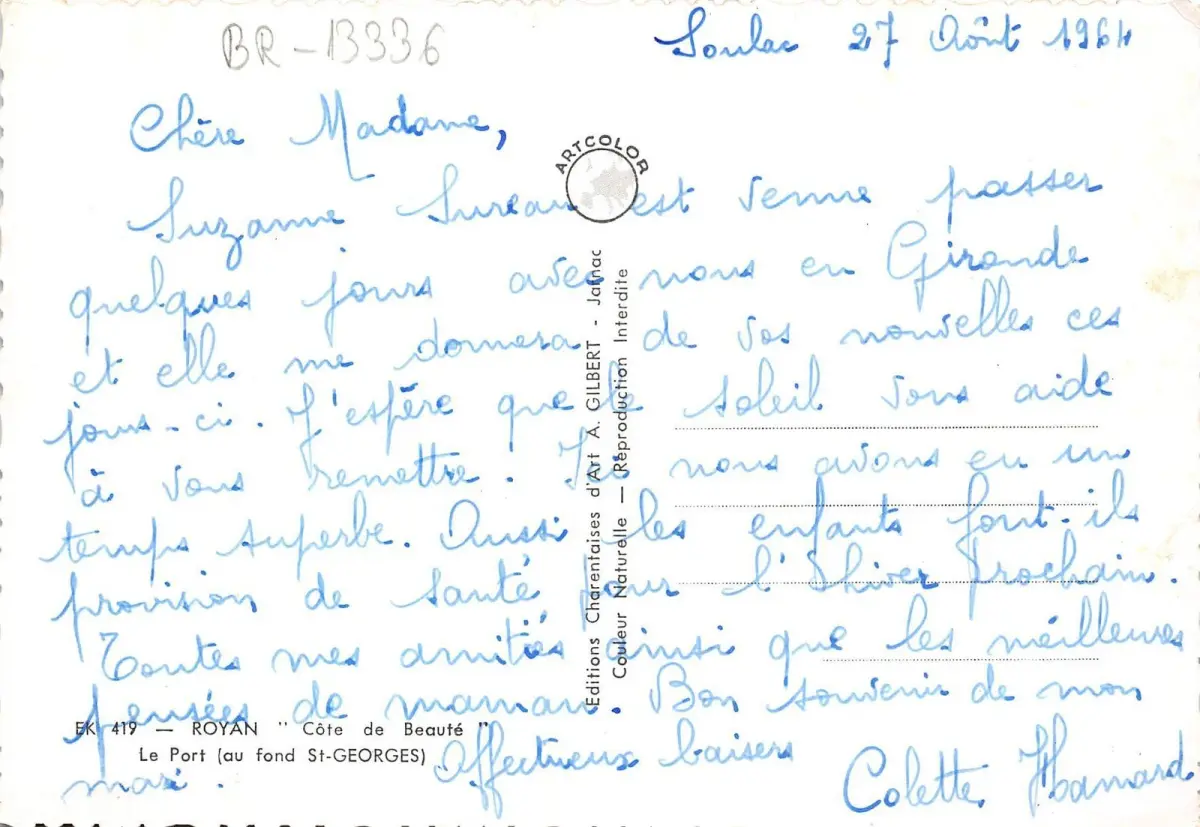 BR-13336
Soulac 27 Août 1964
Chère Madame,
ARTCOLOR
Suzanne Sureau est venue passer
quelques jours avec nous en Gironde
et elle me donnera de vos nouvelles ces
jours-ci. J'espère que le soleil vous aide
à vous remettre. Ici nous avons eu un
temps superbe. Aussi les enfants font-ils
provision de santé pour l'hiver prochain.
Toutes mes amitiés ainsi que les meilleures
pensées de maman. Bon souvenir de mon
mari.
Affectueux baisers
Colette Hamard
Editions Charentaises d'Art A. GILBERT - Jarnac
Couleur Naturelle — Reproduction Interdite
EK 419 — ROYAN " Côte de Beauté "
Le Port (au fond St-GEORGES)